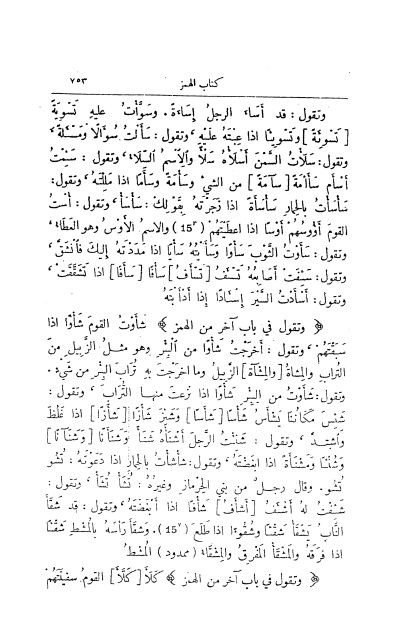 كتاب الهمز ٧٥٣
وتقول: قد أساء الرجلُ إساءةً. وسوَّأتُ عليهِ تسويةً
[تسوئةً] وتسويئًا اذا عبتَهُ عليهِ، وتقول: سألتُ سُؤالًا ومَسئَلةً،
وتقول: سلأتُ السَّمْنَ أسلأهُ سَلْأً والاسم السِّلاء، وتقول: سئِمتُ
أسأم سأامةً [سآمةً] من الشيء وسأمةً وسأمًا اذا مللتَهُ، وتقول:
سأسأتُ بالحمارِ سأسأةً اذا زجرتَهُ بقولك: سأسأ، وتقول: أُستُ
القوم أَؤوسُهُم أوسًا اذا اعطيتَهُم (15ʳ) والاسم الأَوْسُ وهو العطاء،
وتقول: سأوتُ الثوبَ سأوًا وسأيتُهُ سأيًا اذا مددتَهُ إليكَ فانشقَّ،
وتقول: سئِفَت أصابعُهُ تَسئفُ [تسأفُ] سأفًا [سأَفًا] اذا تشقَّقت،
وتقول: أسأدتُ السَّيرَ إسئادًا إذا أدأبتَهُ
﴿ وتقول في باب آخر من الهمز ﴾ شأوتُ القومَ شأوًا اذا
سبقتَهُم، وتقول: أخرجتُ شأوًا من البئرِ وهو مثلُ الزَّبيلِ من
التراب والمشاةُ [والمِشآةُ] الزبيلُ وما اخرجتَ بهِ ترابَ البئرِ من شيء.
وتقول: شأوتُ من البئرِ شأوًا اذا نزعتَ منها الترابَ، وتقول:
شئِسَ مكانُنا يَشأسُ شأْسًا [شأَسًا] وشئِزَ شأْزًا [شأَزًا] اذا غلُظَ
واشتدَّ، وتقول: شنئتُ الرجلَ أشنأهُ شَنْأً وشَنأَانًا [وشنآنًا]
وشُنْئًا ومَشْنَأةً اذا ابغضتَهُ، وتقول: شأشأتُ بالحمارِ اذا دعوتَهُ: تُشُو
تُشُو. وقال رجلٌ من بني الحرماز وغيرُهُ: تُشَأْ تُشَأْ، وتقول:
شئِفتُ لهُ أشئفُ [أشأفُ] شأْفًا اذا أبغضتَهُ، وتقول: قد شقأ
النابُ يشقأُ شقْئًا وشُقُوءًا اذا طلعَ (15ᵛ). وشقأ رأسَهُ بالمُشطِ شقْئًا
اذا فرقَهُ والمَشْقأُ المَفرِقُ والمِشقاءُ (ممدود) المُشطُ
﴿ وتقول في باب آخر من الهمز ﴾ كلأ [كلَّأَ] القومُ سفينتَهُم